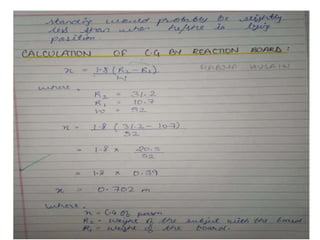 standing would probably be slightly
less than when he/she is in lying
position.
CALCULATION OF CG BY REACTION BOARD:
x = 1.8 (R2 - R1)
W
where,
R2 = 31.2
R1 = 10.7
W = 52
x = 1.8 (31.2 - 10.7)
52
= 1.8 x 20.5
52
= 1.8 x 0.39
x = 0.702 m
where,
x = CG of person
R2 = weight of the subject with the board
R1 = weight of the board.